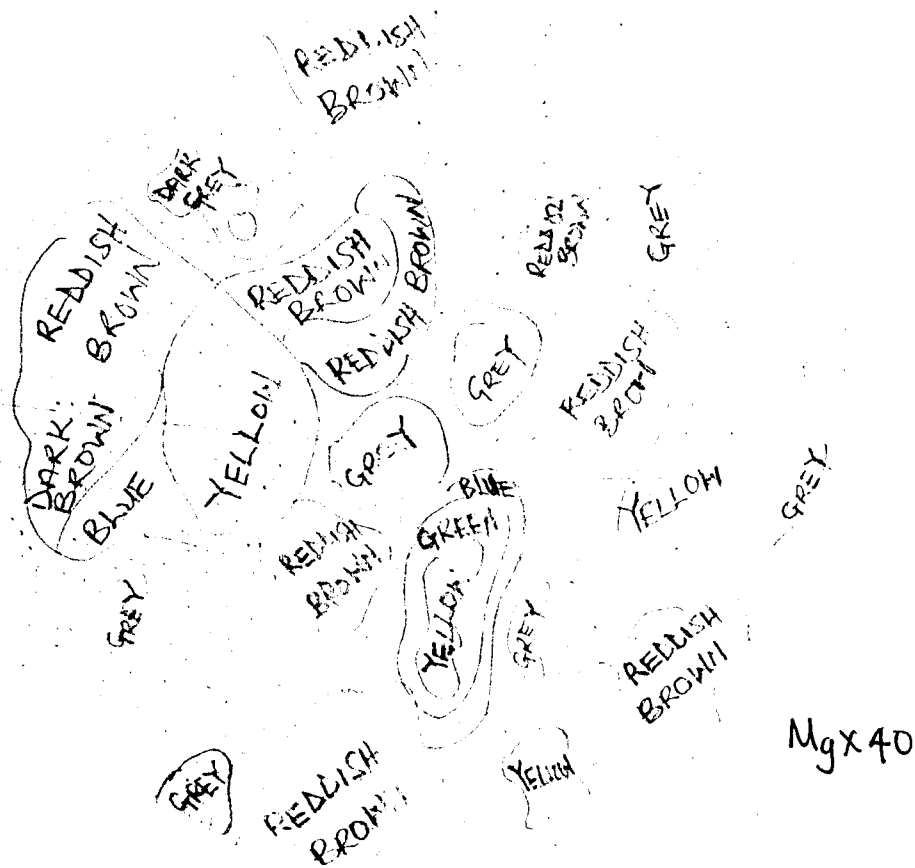 REDDISH
BROWN
DARK
GREY
REDDISH
BROWN
REDDISH
BROWN
REDDISH BROWN
REDDISH
BROWN
GREY
GREY
REDDISH
BROWN
DARK
BROWN
BLUE
YELLOW
GREY
BLUE
GREEN
YELLOW
GREY
REDDISH
BROWN
YELLOW
GREY
GREY
REDDISH
BROWN
GREY
REDDISH
BROWN
YELLOW
MgX40